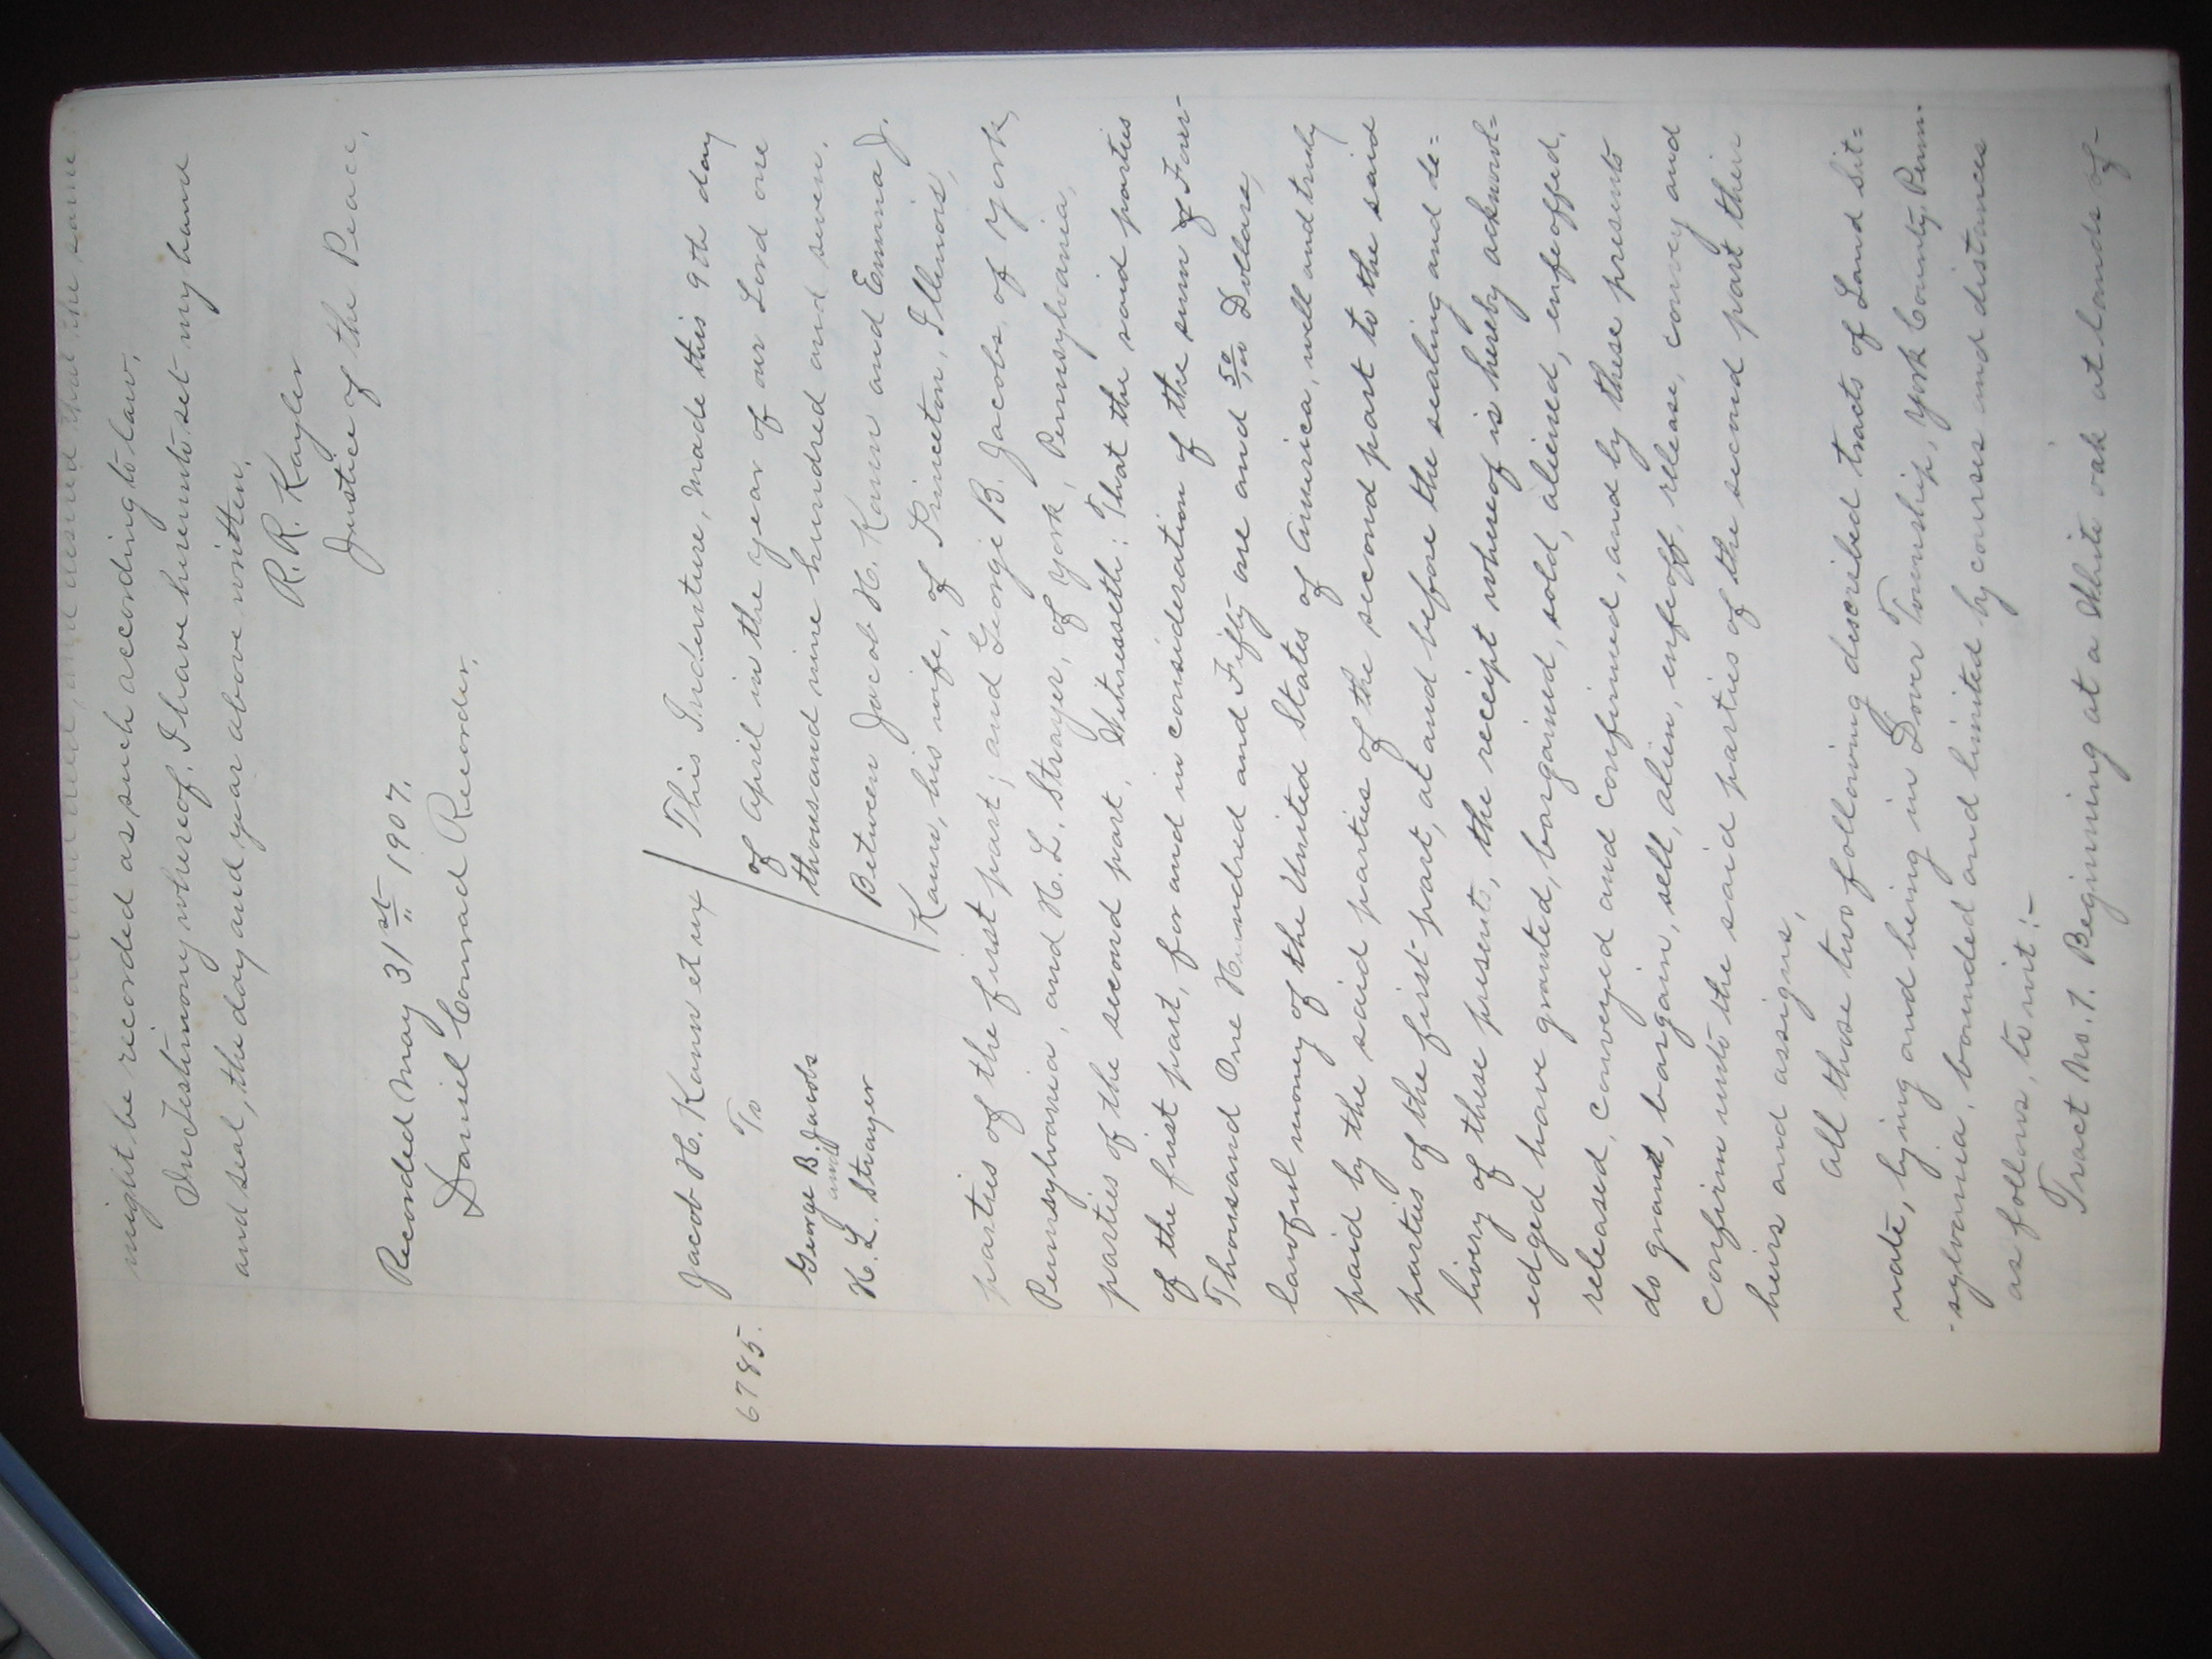 and desired that the same
might be recorded as such according to law.
In Testimony whereof, I have hereunto set my hand
and seal, the day and year above written.
R. R. Kayler
Justice of the Peace,
Recorded May 31st 1907.
Daniel Conrad Recorder,
Jacob H. Kann et ux
To
George B. Jacobs
and
H. L. Strayer
6785.
This Indenture, Made this 9th day
of April in the year of our Lord one
thousand nine hundred and seven.
Between Jacob H. Kann and Emma J.
Kann, his wife, of Princeton, Illinois,
parties of the first part; and George B. Jacobs, of York,
Pennsylvania, and H. L. Strayer, of York, Pennsylvania,
parties of the second part, Witnesseth: That the said parties
of the first part, for and in consideration of the sum of Four-
Thousand One Hundred and Fifty one and 50/100 Dollars,
lawful money of the United States of America, well and truly
paid by the said parties of the second part to the said
parties of the first part, at and before the sealing and de=
livery of these presents, the receipt whereof is hereby acknowl=
edged have granted, bargained, sold, aliened, enfeoffed,
released, conveyed and confirmed, and by these presents
do grant, bargain, sell, alien, enfeoff, release, convey and
confirm unto the said parties of the second part their
heirs and assigns,
All those two following described tracts of Land sit=
uate, lying and being in Dover Township, York County, Penn-
-sylvania, bounded and limited by courses and distances
as follows, to wit:-
Tract No. 1. Beginning at a White oak at lands of